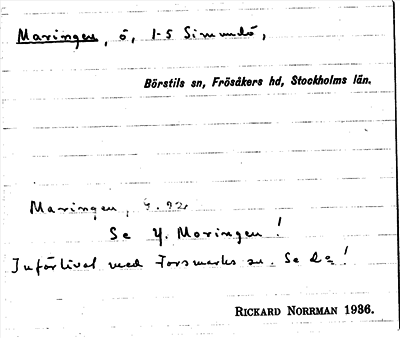 Maringen, ö, 1-5 Simundö,
Börstils sn, Frösåkers hd, Stockholms län.
Maringen, G. 92
Se Y. Maringen!
Införlivat med Forsmarks sn. Se da!
RICKARD NORRMAN 1936.